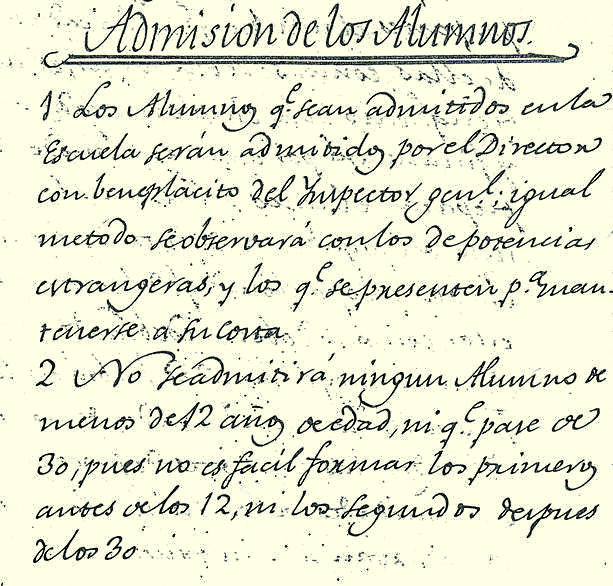 Admision de los Alumnos.
1 Los Alumnos q.e sean admitidos en la
Escuela serán admitidos por el Director
con beneplacito del Ynspector gen.l; igual
metodo se observará con los de potencias
estrangeras, y los q.e se presenten p.a man-
tenerse á su costa
2 No se admitirá ningun Alumno de
menos de 12 años de edad, ni q.e pase de
30, pues no es facil formar los primeros
antes de los 12, ni los segundos despues
de los 30